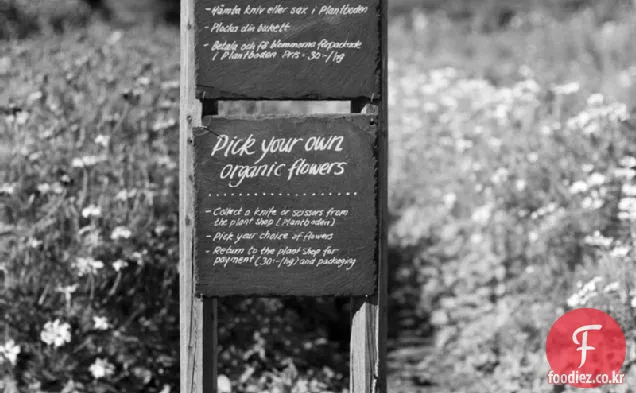 - Hämta kniv eller sax i Plantboden
- Plocka din bukett
- Betala och få blommorna förpackade
i Plantboden Pris: 30:-/hg
Pick your own
organic flowers
- Collect a knife or scissors from
the plant shop (Plantboden)
- Pick your choice of flowers
- Return to the plant shop for
payment (30:-/hg) and packaging
F
foodiez.co.kr